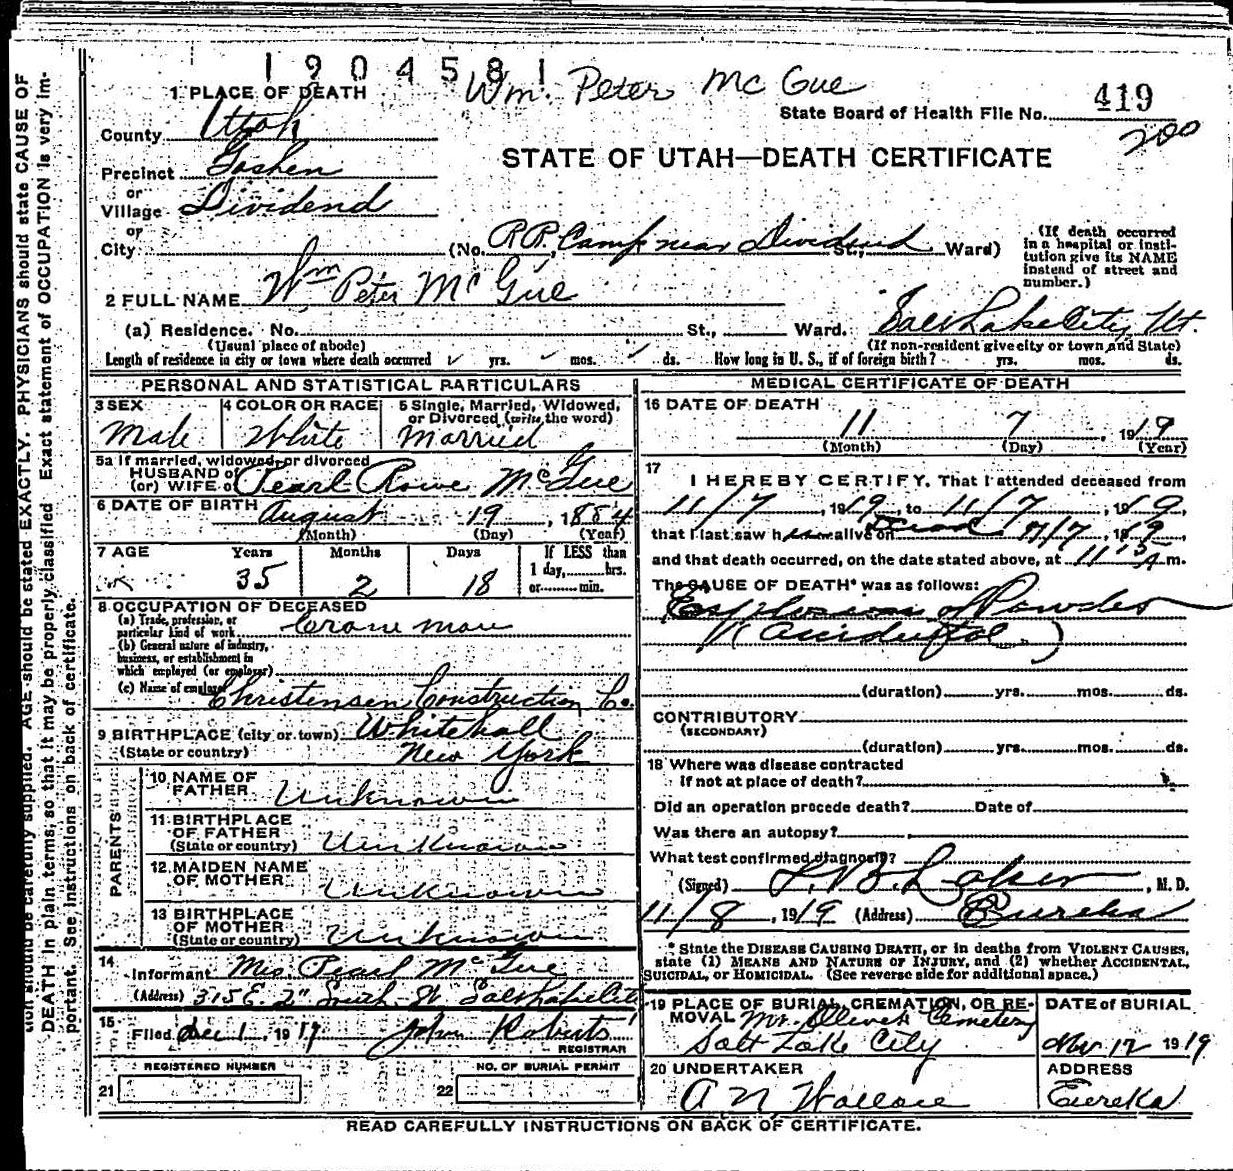 1904581
Wm. Peter McGue
1 PLACE OF DEATH
State Board of Health File No. 419
200
County Utah
STATE OF UTAH—DEATH CERTIFICATE
Precinct Goshen
or
Village Dividend
or
City (No. R.R. Camp near Dividend St., Ward)
(If death occurred in a hospital or institution give its NAME instead of street and number.)
2 FULL NAME Wm Peter McGue
(a) Residence. No. St., Ward. Salt Lake City, Ut.
(Usual place of abode) (If non-resident give city or town and State)
Length of residence in city or town where death occurred yrs. mos. ds. How long in U. S., if of foreign birth? yrs. mos. ds.
PERSONAL AND STATISTICAL PARTICULARS
3 SEX Male
4 COLOR OR RACE White
5 Single, Married, Widowed, or Divorced (write the word) Married
5a If married, widowed, or divorced
HUSBAND of
(or) WIFE of Pearl Rowe McGue
6 DATE OF BIRTH August 19, 1884
(Month) (Day) (Year)
7 AGE Years Months Days If LESS than
35 2 18 1 day, hrs.
or min.
8 OCCUPATION OF DECEASED
(a) Trade, profession, or
particular kind of work Crane man
(b) General nature of industry,
business, or establishment in
which employed (or employer)
(c) Name of employer Christensen Construction Co.
9 BIRTHPLACE (city or town) Whitehall
(State or country) New York
PARENTS
10 NAME OF FATHER Unknown
11 BIRTHPLACE OF FATHER (State or country) Unknown
12 MAIDEN NAME OF MOTHER Unknown
13 BIRTHPLACE OF MOTHER (State or country) Unknown
14 Informant Mrs. Pearl McGue
(Address) 315 E. 2nd South St Salt Lake City
15 Filed Dec 1, 1919 John Roberts
REGISTRAR
REGISTERED NUMBER NO. OF BURIAL PERMIT
21 22
MEDICAL CERTIFICATE OF DEATH
16 DATE OF DEATH
11 7, 1919
(Month) (Day) (Year)
17 I HEREBY CERTIFY, That I attended deceased from
11/7, 1919, to 11/7, 1919,
that I last saw him alive on Dead 11/7, 1919,
and that death occurred, on the date stated above, at 11 15 A m.
The CAUSE OF DEATH* was as follows:
Explosion of Powder
(Accidental)
(duration) yrs. mos. ds.
CONTRIBUTORY
(SECONDARY)
(duration) yrs. mos. ds.
18 Where was disease contracted
if not at place of death?
Did an operation precede death? Date of
Was there an autopsy?
What test confirmed diagnosis?
(Signed) , M. D.
11/8, 1919 (Address) Eureka
* State the DISEASE CAUSING DEATH, or in deaths from VIOLENT CAUSES,
state (1) MEANS AND NATURE OF INJURY, and (2) whether ACCIDENTAL,
SUICIDAL, or HOMICIDAL. (See reverse side for additional space.)
19 PLACE OF BURIAL, CREMATION, OR REMOVAL Mt. Olivet Cemetery
Salt Lake City
DATE OF BURIAL
Nov 12 1919
20 UNDERTAKER
A N Wallace
ADDRESS
Eureka
READ CAREFULLY INSTRUCTIONS ON BACK OF CERTIFICATE.
tion should be carefully supplied. AGE should be stated EXACTLY. PHYSICIANS should state CAUSE OF
DEATH in plain terms, so that it may be properly classified. Exact statement of OCCUPATION is very im-
portant. See instructions on back of certificate.